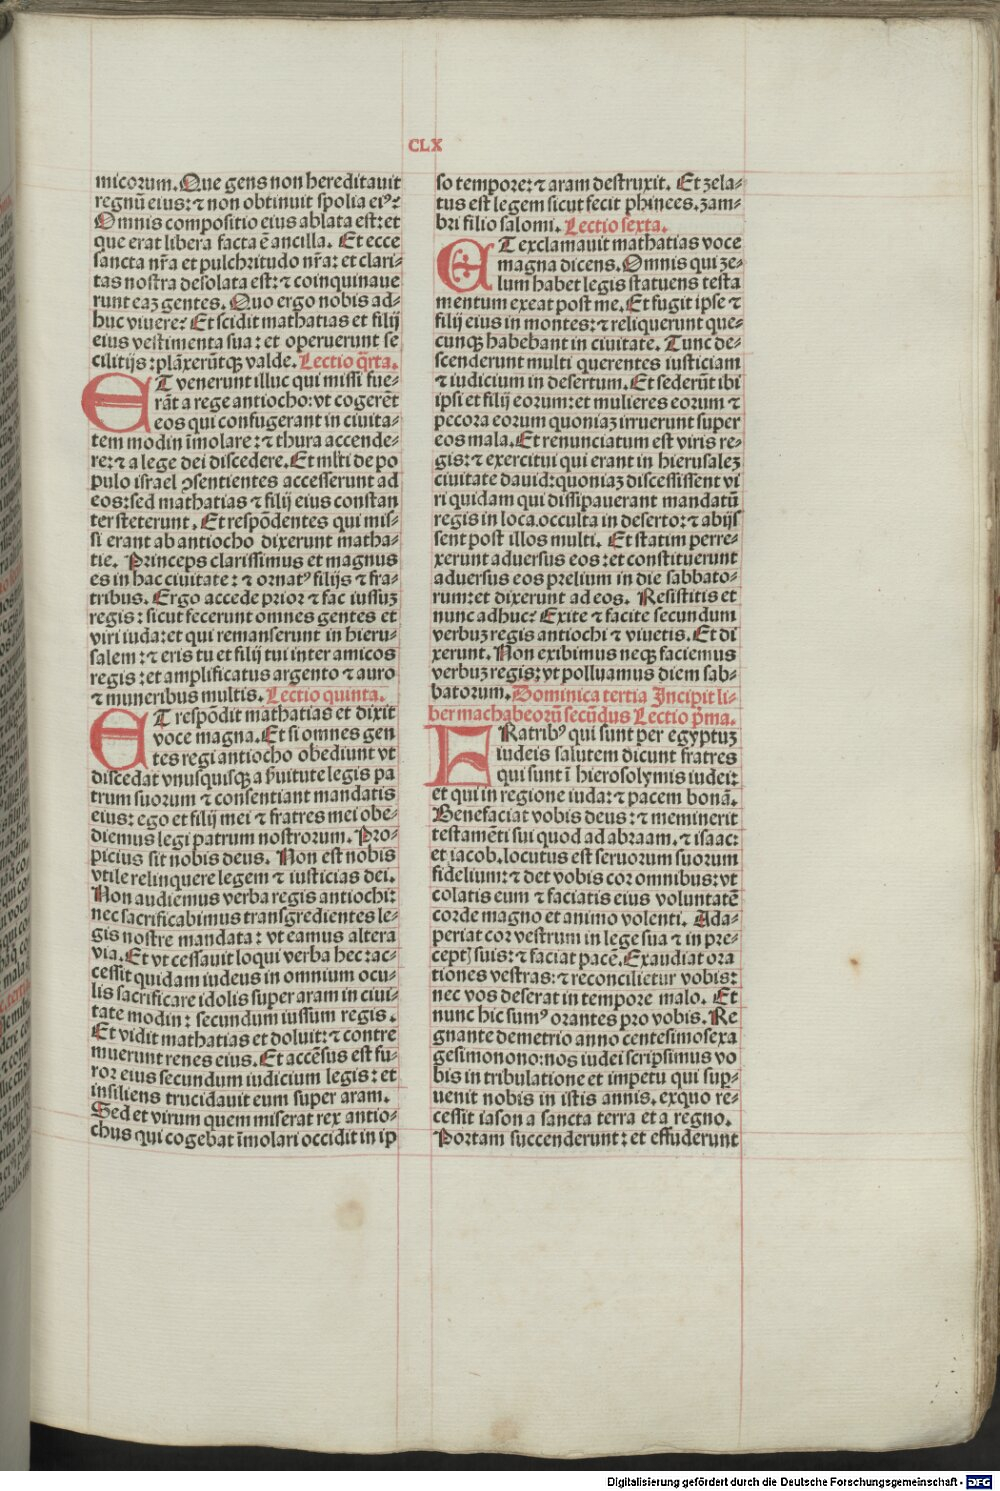 CLX
micorum. Que gens non hereditauit
regnū eius: ⁊ non obtinuit spolia eiꝰ?
Omnis compositio eius ablata est: et
que erat libera facta ē ancilla. Et ecce
sancta nr̄a et pulchritudo nr̄a: et clari-
tas nostra desolata est: ⁊ coinquinaue
runt eaꝫ gentes. Quo ergo nobis ad-
huc viuere? Et scidit mathatias et filij
eius vestimenta sua: et operuerunt se
cilitijs: plāxerūtqꝫ valde. Lectio q̄rta.
ET venerunt illuc qui missi fue-
rāt a rege antiocho: vt cogerēt
eos qui confugerant in ciuita-
tem modin īmolare: ⁊ thura accende-
re: ⁊ a lege dei discedere. Et ml̄ti de po
pulo israel ꝯsentientes accesserunt ad
eos: sed mathatias ⁊ filij eius constan
ter steterunt. Et respōdentes qui mis-
si erant ab antiocho dixerunt matha-
tie. Princeps clarissimus et magnus
es in hac ciuitate: ⁊ ornatꝰ filijs ⁊ fra-
tribus. Ergo accede prior ⁊ fac iussuꝫ
regis: sicut fecerunt omnes gentes et
viri iuda: et qui remanserunt in hieru-
salem: ⁊ eris tu et filij tui inter amicos
regis: et amplificatus argento ⁊ auro
⁊ muneribus multis. Lectio quinta.
ET respōdit mathatias et dixit
voce magna. Et si omnes gen
tes regi antiocho obediunt vt
discedat vnusquisqꝫ a ẜuitute legis pa
trum suorum ⁊ consentiant mandatis
eius: ego et filij mei ⁊ fratres mei obe-
diemus legi patrum nostrorum. Pro-
picius sit nobis deus. Non est nobis
vtile relinquere legem ⁊ iusticias dei.
Non audiemus verba regis antiochi:
nec sacrificabimus transgredientes le-
gis nostre mandata: vt eamus altera
via. Et vt cessauit loqui verba hec: ac-
cessit quidam iudeus in omnium ocu-
lis sacrificare idolis super aram in ciui-
tate modin: secundum iussum regis.
Et vidit mathatias et doluit: ⁊ contre
muerunt renes eius. Et accēsus est fu-
ror eius secundum iudicium legis: et
insiliens trucidauit eum super aram.
Sed et virum quem miserat rex antio-
chus qui cogebat īmolari occidit in ip
so tempore: ⁊ aram destruxit. Et zela-
tus est legem sicut fecit phinees. zam-
bri filio salomi. Lectio sexta.
ET exclamauit mathatias voce
magna dicens. Omnis qui ze-
lum habet legis statuens testa
mentum exeat post me. Et fugit ipse ⁊
filij eius in montes: ⁊ reliquerunt que-
cunqꝫ habebant in ciuitate. Tunc de-
scenderunt multi querentes iusticiam
⁊ iudicium in desertum. Et sederūt ibi
ipsi et filij eorum: et mulieres eorum ⁊
pecora eorum quoniaꝫ irruerunt super
eos mala. Et renunciatum est viris re-
gis: ⁊ exercitui qui erant in hierusaleꝫ
ciuitate dauid: quoniaꝫ discessissent vi
ri quidam qui dissipauerant mandatū
regis in loca occulta in deserto: ⁊ abijs
sent post illos multi. Et statim perre-
xerunt aduersus eos: et constituerunt
aduersus eos prelium in die sabbato-
rum: et dixerunt ad eos. Resistitis et
nunc adhuc? Exite ⁊ facite secundum
verbuꝫ regis antiochi ⁊ viuetis. Et di
xerunt. Non exibimus neqꝫ faciemus
verbuꝫ regis: vt polluamus diem sab-
batorum. Dominica tertia Incipit li-
ber machabeorū secūdus Lectio p̄ma.
FRatribꝰ qui sunt per egyptuꝫ
iudeis salutem dicunt fratres
qui sunt ī hierosolymis iudei:
et qui in regione iuda: ⁊ pacem bonā.
Benefaciat vobis deus: ⁊ meminerit
testamēti sui quod ad abraam. ⁊ isaac:
et iacob. locutus est seruorum suorum
fidelium: ⁊ det vobis cor omnibus: vt
colatis eum ⁊ faciatis eius voluntatē
corde magno et animo volenti. Ada-
periat cor vestrum in lege sua ⁊ in pre-
ceptꝭ suis: ⁊ faciat pacē. Exaudiat ora
tiones vestras: ⁊ reconcilietur vobis:
nec vos deserat in tempore malo. Et
nunc hic sumꝰ orantes pro vobis. Re
gnante demetrio anno centesimosexa
gesimonono: nos iudei scripsimus vo
bis in tribulatione et impetu qui sup-
uenit nobis in istis annis. exquo re-
cessit iason a sancta terra et a regno.
Portam succenderunt: et effuderunt
Digitalisierung gefördert durch die Deutsche Forschungsgemeinschaft - DFG